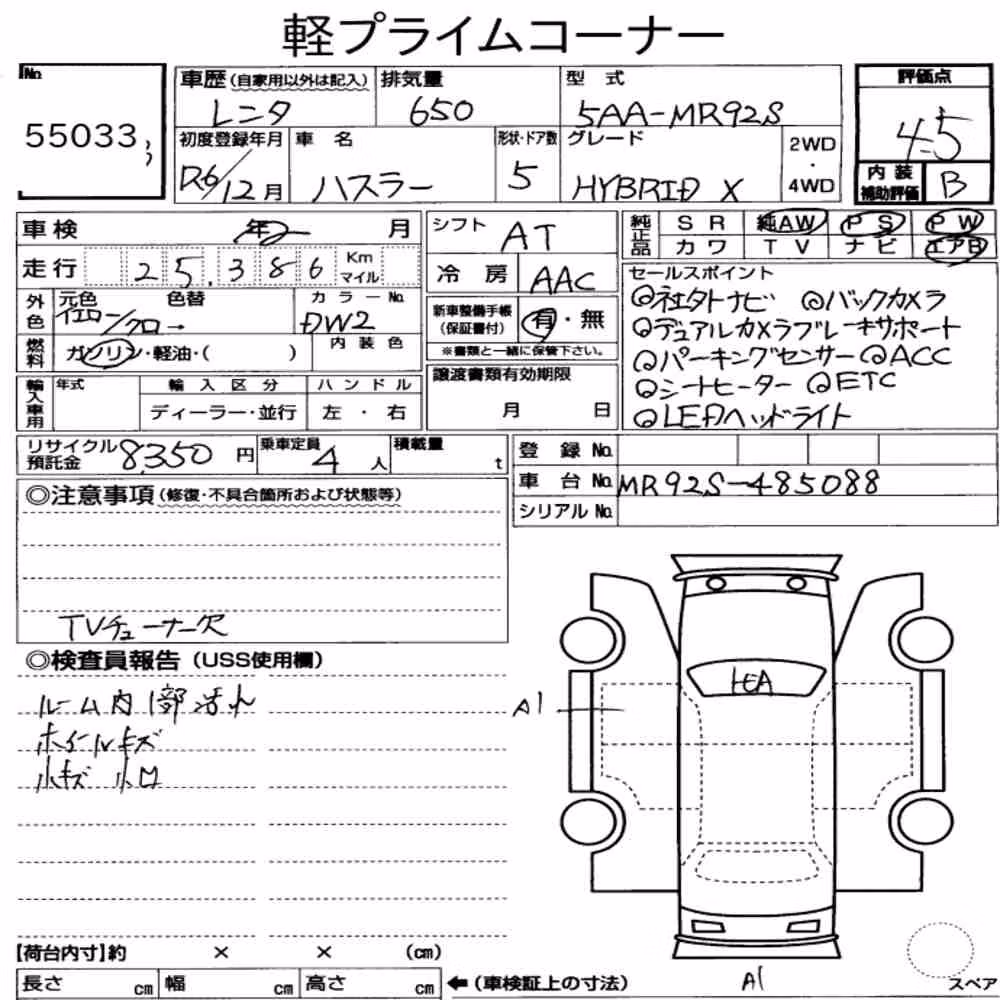 軽プライムコーナー
No. 55033
車歴 (自家用以外は記入) レンタ
排気量 650
型式 5AA-MR92S
評価点 4.5
初度登録年月 R6/12月
車名 ハスラー
形状・ドア数 5
グレード HYBRID X
2WD ・ 4WD
内装補助評価 B
車検 年 月
シフト AT
純正品 SR 純AW PS PW
カワ TV ナビ エアB
走行 25,386 Km マイル
冷房 AAC
セールスポイント
◎社外ナビ ◎バックカメラ
◎デュアルカメラブレーキサポート
◎パーキングセンサー ◎ACC
◎シートヒーター ◎ETC
◎LEDヘッドライト
外色 元色 色替 イエロー/クロー
カラーNo. DW2
新車整備手帳 (保証書付) 有・無
※書類と一緒に保管下さい。
燃料 ガソリン・軽油・( )
内装色
譲渡書類有効期限
月 日
輸入車用 年式 輸入区分 ハンドル
ディーラー・並行 左・右
リサイクル預託金 8,350円
乗車定員 4人
積載量 t
登録No.
車台No. MR92S-485088
シリアルNo.
◎注意事項 (修復・不具合箇所および状態等)
TVチューナー欠
◎検査員報告 (USS使用欄)
ルーム内1部汚れ
ホイールキズ
小キズ 小凹
A1
A1
【荷台内寸】約 × × (cm)
長さ cm 幅 cm 高さ cm
←(車検証上の寸法)
スペア